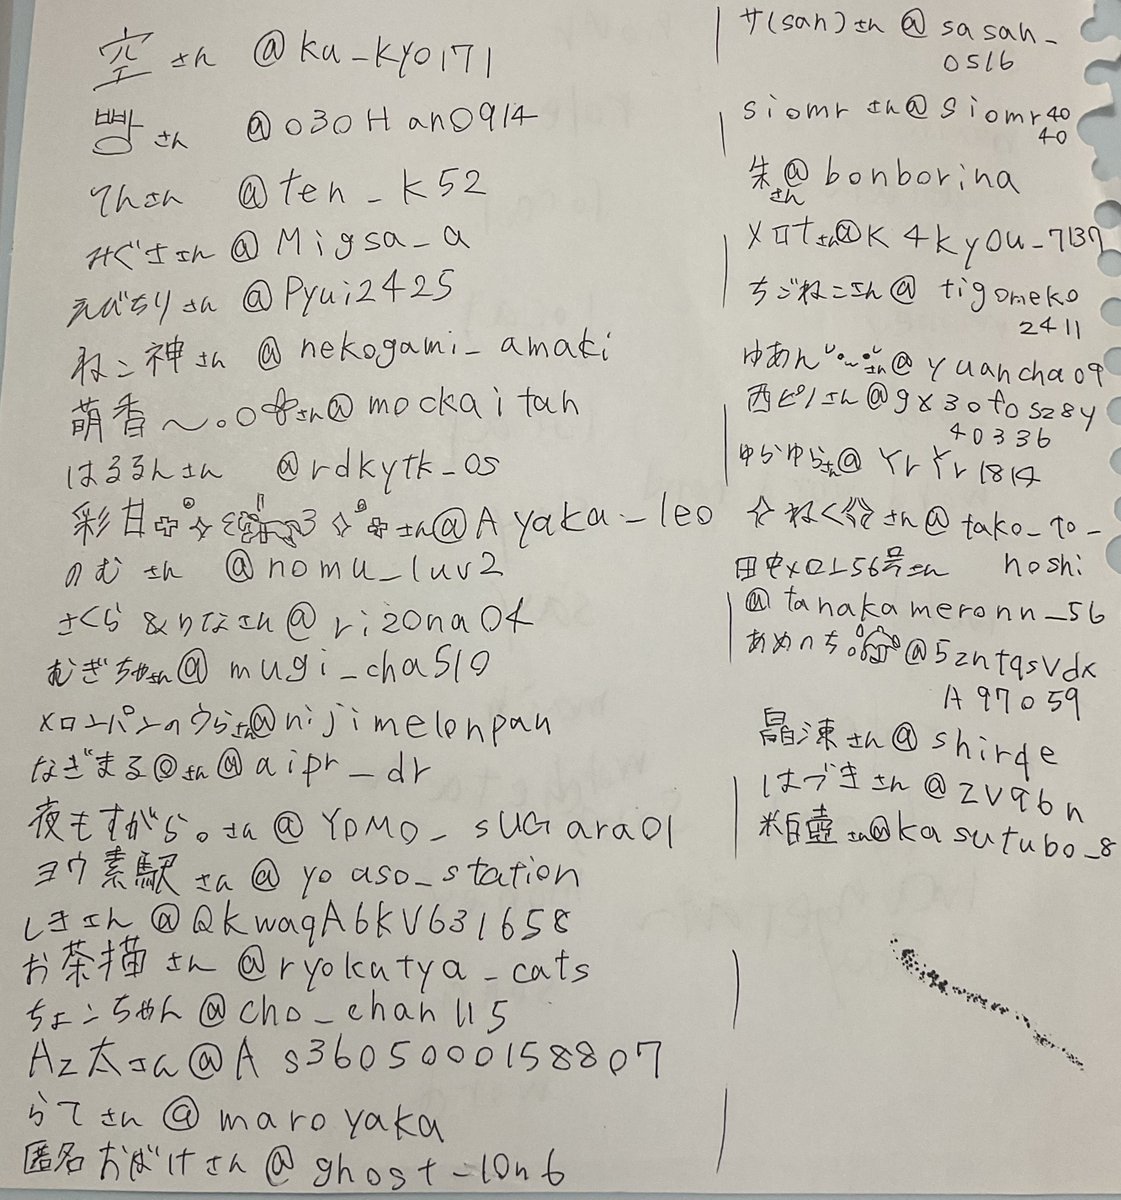 空さん @ku_kyo171
빵さん @030Han0914
てんさん @ten_k52
みぐささん @Migsa_a
えびちりさん @Pyui2425
ねこ神さん @nekogami_amaki
萌香〜。○さん@mockaitan
はるるんさん @rdkytk_os
彩甘さん@Ayaka_leo
のむさん @nomu_luv2
さくら&りなさん@rizona04
むぎちゃさん@mugi_cha510
メロンパンのうらさん@nijimelonpan
なぎまる@さん@aipr_dr
夜もすがら。さん@YOMO_sUGara01
ヨウ素駅さん@yoaso_station
しきさん@QkwaqA6kV631658
お茶描さん@ryokutya_cats
ちょこちゃん@cho_chan115
Az太さん@As3605000158807
らてさん@maroyaka
匿名おばけさん@ghost_10n6
サ(san)さん@sasan_
0516
siomrさん@siomr40
40
朱さん@bonborina
メロナさん@K4kyou_7137
ちごねこさん@tigomeko
2411
ゆあんさん@yuancha09
西ピノさん@gx30f0sz8y
40336
ゆらゆらさん@YrYr1814
☆ねく さん@tako_to_
hoshi
田中メロン56号さん
@tanakameronn_56
あめのち。@5zntqsVdx
A97059
晶凍さん@shirqe
はづきさん@zvq6n
粕壺さん@kasutubo_8